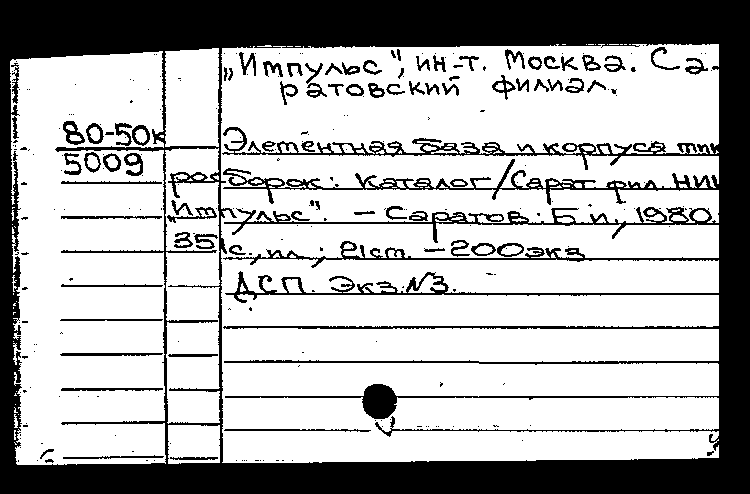 „Импульс", ин-т. Москва. Са-
ратовский филиал.
80-50к
5009
Элементная база и корпуса мик
росборок: Каталог/Сарат. фил. НИИ
"Импульс". – Саратов: Б.и., 1980.
35 с., ил.; 21 см. – 200 экз
ДСП. Экз. №3.